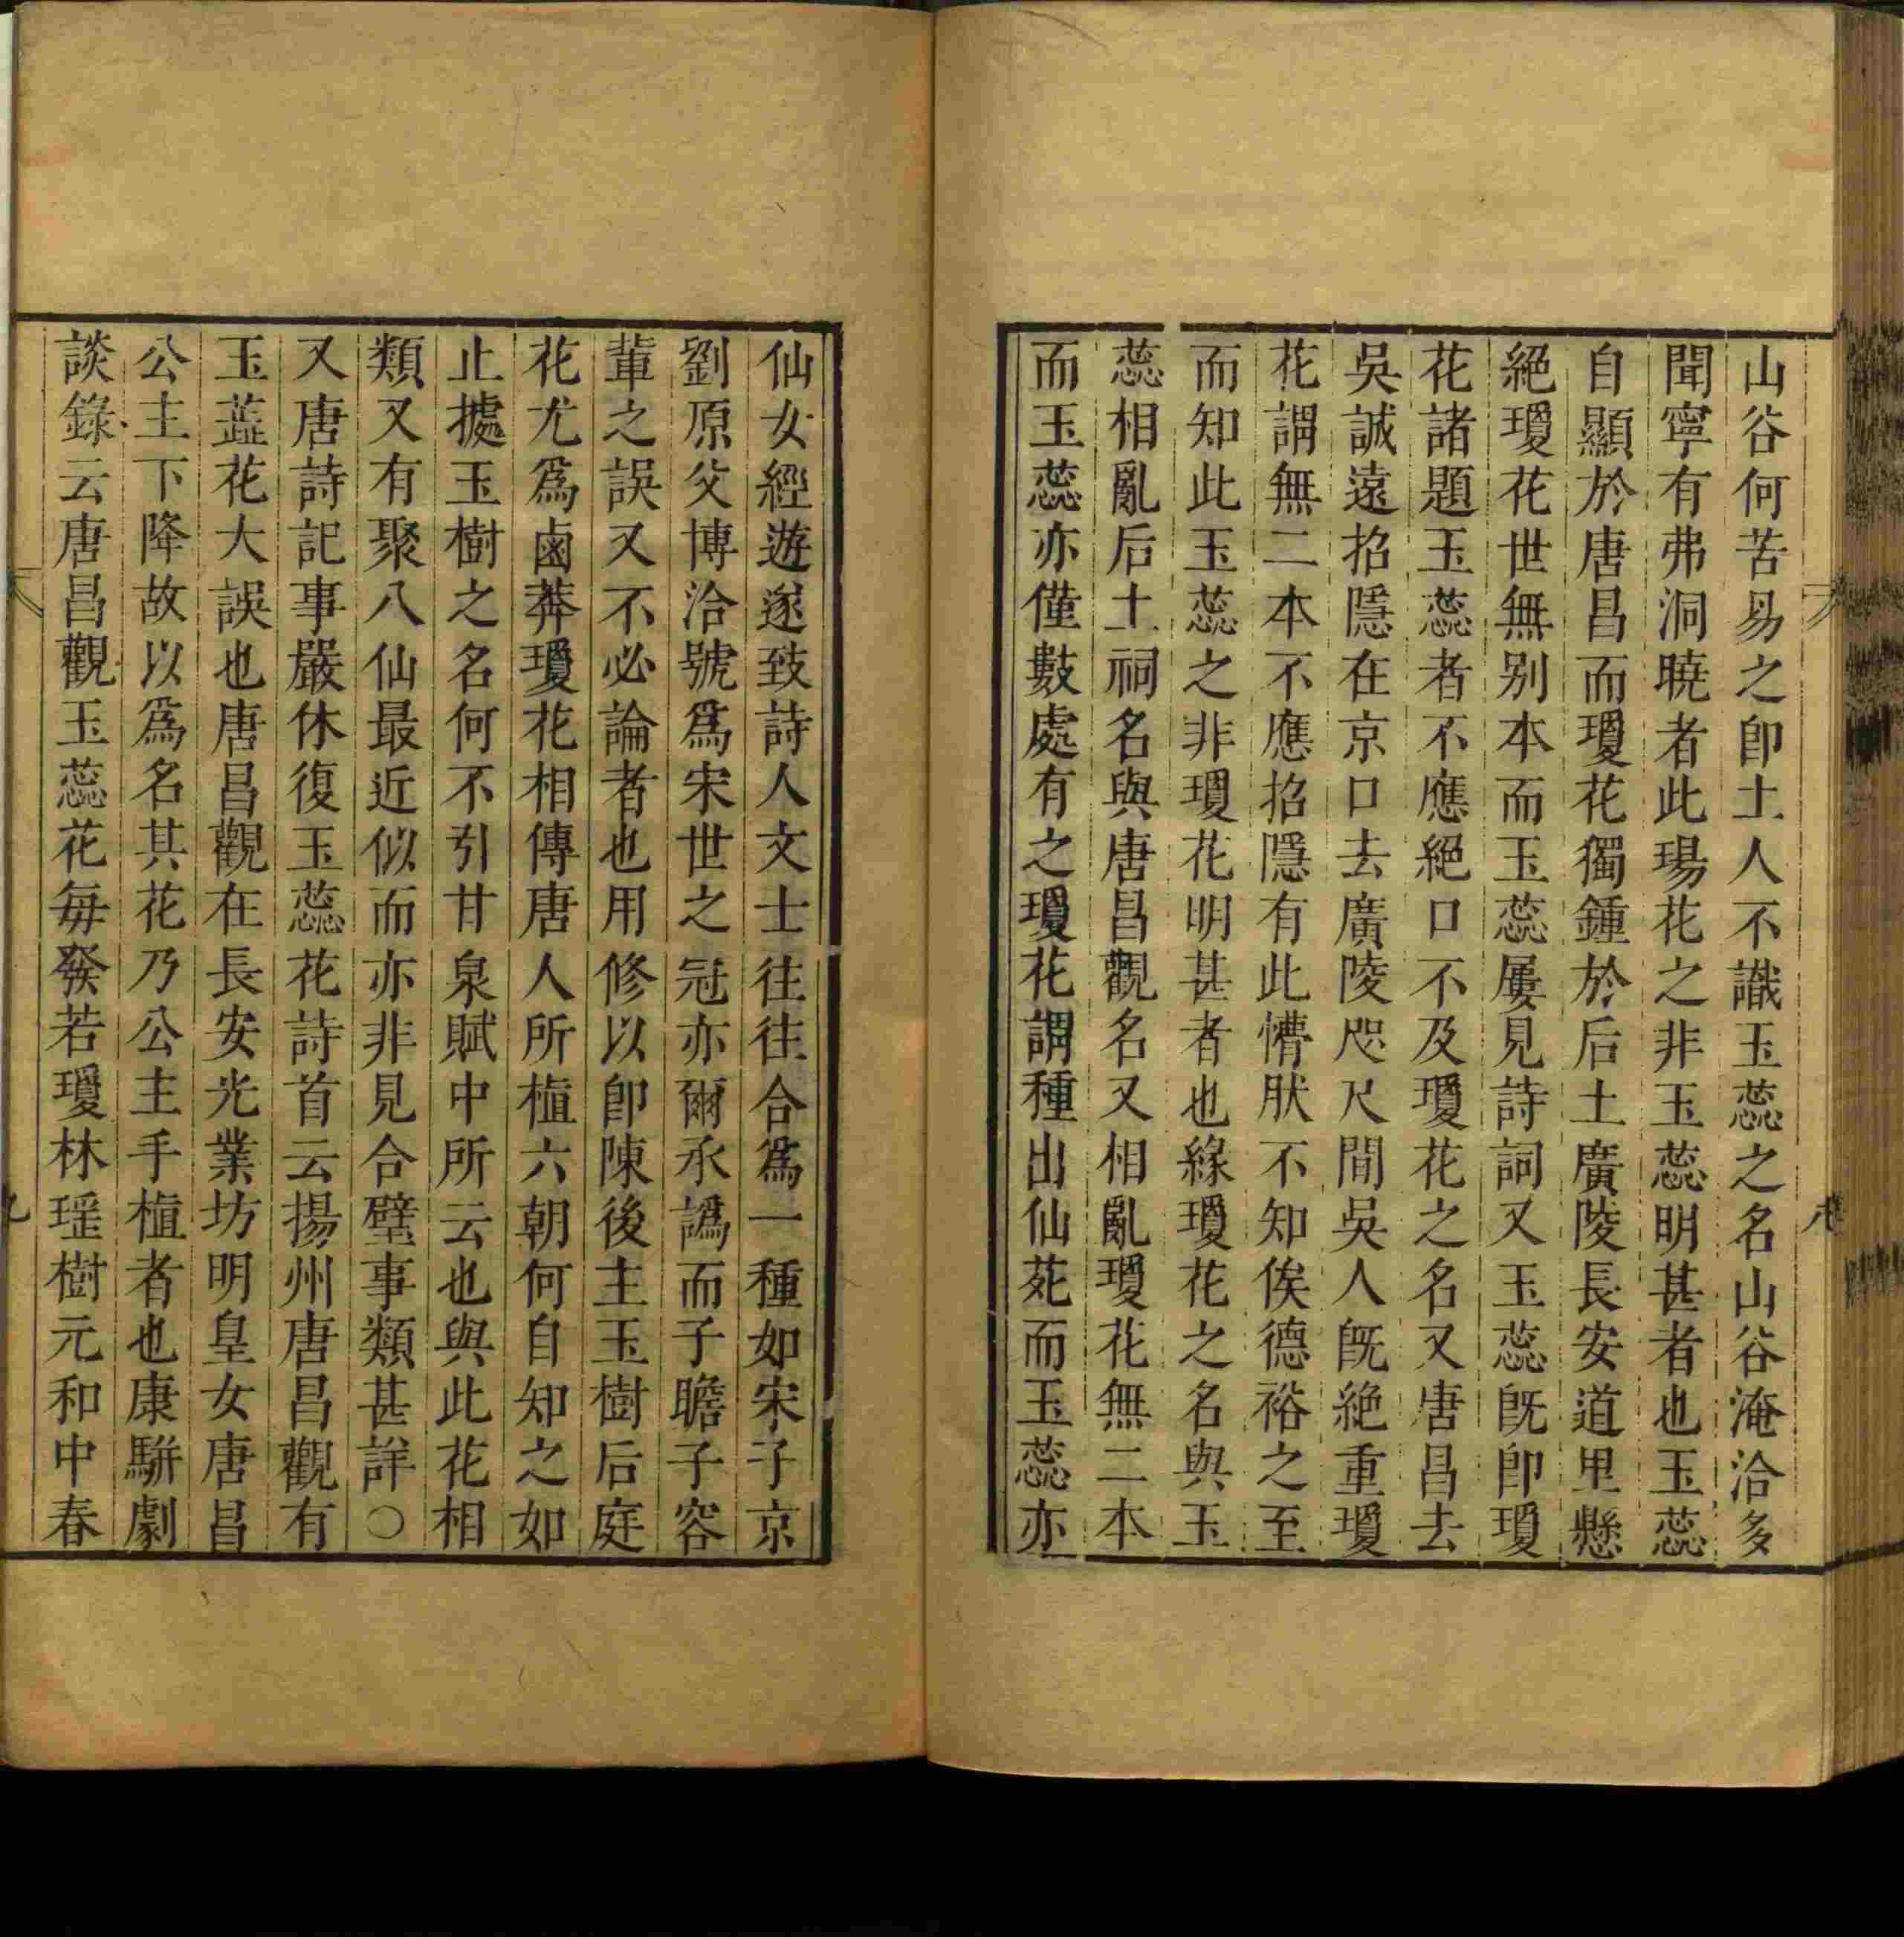 山谷何苦易之卽土人不識玉蕊之名山谷淹洽多
聞寧有弗洞曉者此瑒花之非玉蕊明甚者也玉蕊
自顯於唐昌而瓊花獨鍾於后土廣陵長安道里懸
絕瓊花世無别本而玉蕊屢見詩詞又玉蕊旣卽瓊
花諸題玉蕊者不應絕口不及瓊花之名又唐昌去
吳誠遠招隱在京口去廣陵咫尺間吳人旣絕重瓊
花謂無二本不應招隱有此懵肰不知俟德裕之至
而知此玉蕊之非瓊花明甚者也緣瓊花之名與玉
蕊相亂后土祠名與唐昌觀名又相亂瓊花無二本
而玉蕊亦僅數處有之瓊花謂種出仙苑而玉蕊亦
仙女經遊遂致詩人文士往往合爲一種如宋子京
劉原父博洽號爲宋世之冠亦爾承譌而子瞻子容
輩之誤又不必論者也用修以卽陳後主玉樹后庭
花尤爲鹵莽瓊花相傳唐人所植六朝何自知之如
止據玉樹之名何不引甘泉賦中所云也與此花相
類又有聚八仙最近似而亦非見合璧事類甚詳〇
又唐詩記事嚴休復玉蕊花詩首云揚州唐昌觀有
玉蕋花大誤也唐昌觀在長安光業坊明皇女唐昌
公主下降故以爲名其花乃公主手植者也康駢劇
談錄云唐昌觀玉蕊花每發若瓊林瑶樹元和中春